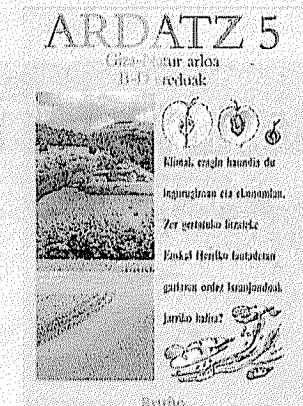 ARDATZ 5
Giza-Natur arloa
B-D ereduak
Klimak eragin haundia du
ingurugiroan eta ekonomian.
Zer gertatuko litzateke
Euskal Herriko lautadetan
gariaren ordez
jarriko balira?